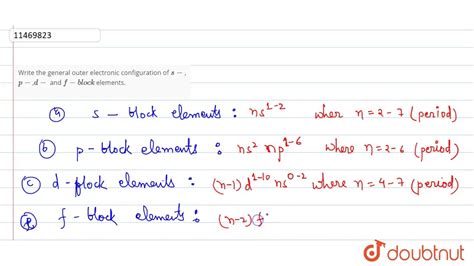 11469823
Write the general outer electronic configuration of s −,
p −, d − and f − block elements.
(a) s - block elements : ns^1-2 wher n = 2-7 (period)
(b) p - block elements : ns² np^1-6 where n = 2-6 (period)
(c) d - block elements : (n-1) d^1-10 ns^0-2 where n = 4-7 (period)
f - block elements : (n-2) f
doubtnut